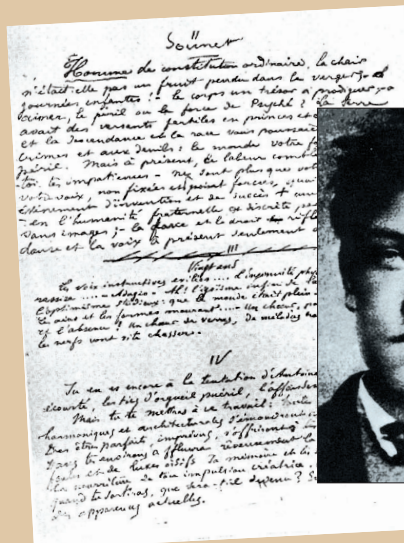 II
Sonnet
Homme de constitution ordinaire, la chair
n'était-elle pas un fruit pendu dans le verger; ô
journées enfantes! - le corps un trésor à prodiguer; - ô
aimer, le péril ou la force de Psyché? La terre
avait des versants fertiles en princes et
et la descendance et la race vous poussaient
crimes et aux deuils: le monde votre
péril. Mais à présent, ce labeur comblé
toi, tes impatiences - ne sont plus que votre
votre voix, non fixées et point forcées,
événement d'invention et de succès + une
- en l'humanité fraternelle et discrète
sans images; - la force et le droit
danse et la voix à présent seulement
III
Vingt ans
Les voix instructives exilées.... L'ingénuité
rassise.... - Adagio - Ah! l'égoïsme
l'optimisme studieux: que le monde était plein
les airs et les formes mourant.... - Un chœur,
et l'absence! Un chœur de verres, de mélodies
les nerfs vont vite chasser.
IV
Tu en es encore à la tentation d'Antoine
écourté, les tics d'orgueil puéril, l'affaissement
Mais tu te mettras à ce travail: toutes
harmoniques et architecturales s'émouvront
Des êtres parfaits, imprévus, s'offriront
Dans tes environs affluera rêveusement la
foules et de luxes oisifs. Ta mémoire et tes
la nourriture de ton impulsion créatrice.
quand tu sortiras, que sera-t-il devenu?
des apparences actuelles.